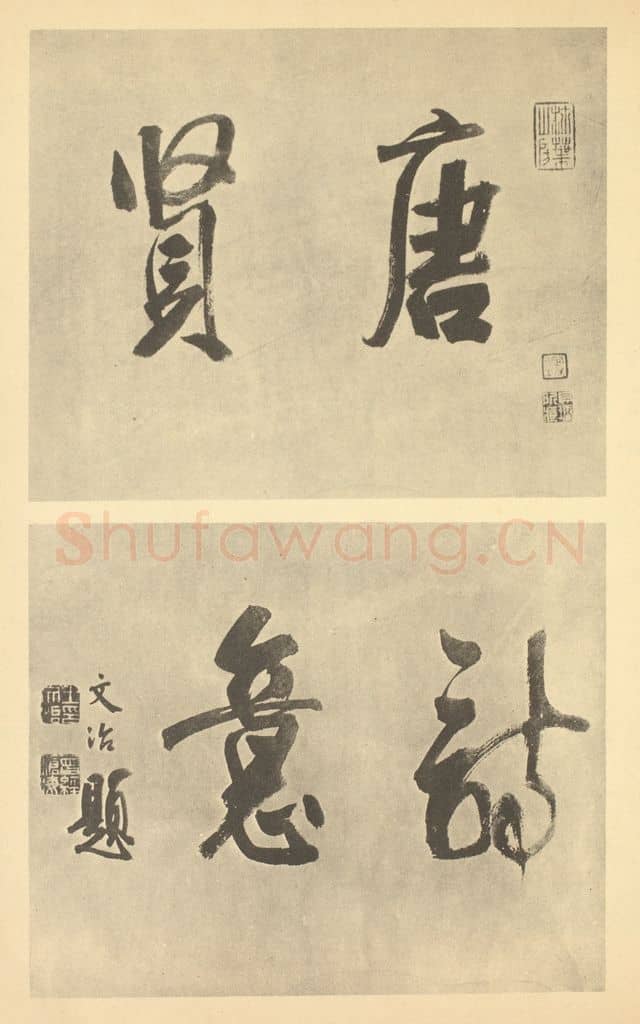 唐賢
詩意
文治題
Shufawang.CN